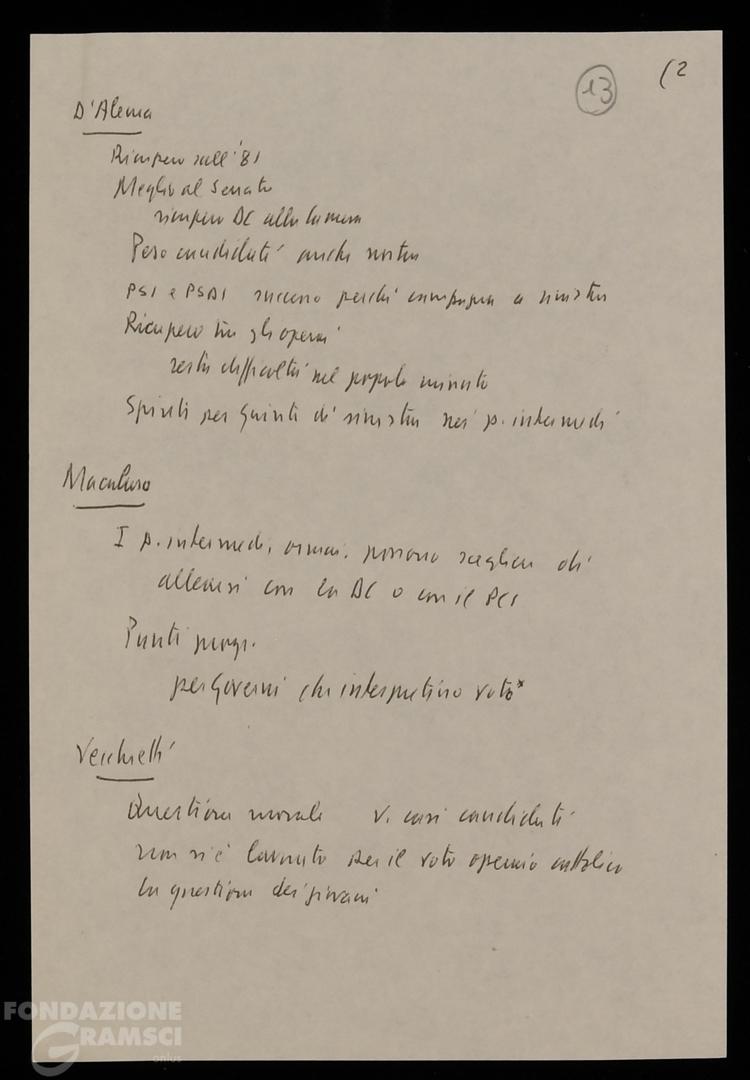 13
(2
D'Alema
Ricupero sull'81
Meglio al Senato
ricupero DC alla Camera
Peso candidati anche nostra
PSI e PSDI successo perché campagna a sinistra
Ricupero tra gli operai
resta difficoltà nel popolo minuto
Spinti per Giunte di sinistra nei p. intermedi
Macaluso
I p. intermedi, ormai, possono scegliere di
allearsi con la DC o con il PCI
Punti progr.
per Governi che interpretino voto*
Vecchietti
Questione morale v. casi candidati
non si è lavorato per il voto operaio cattolico
la questione dei giovani
FONDAZIONE
GRAMSCI
onlus